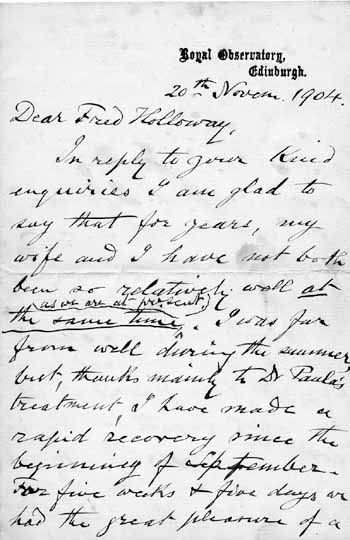 Royal Observatory,
Edinburgh.
20th Novem. 1904.
Dear Fred Holloway,
In reply to your kind
enquiries I am glad to
say that for years, my
wife and I have not both
been so relatively well at
as we are at present,
the same time. I was far
from well during the summer,
but, thanks mainly to Dr Paula's
treatment, I have made a
rapid recovery since the
beginning of September.
For five weeks & five days we
had the great pleasure of a